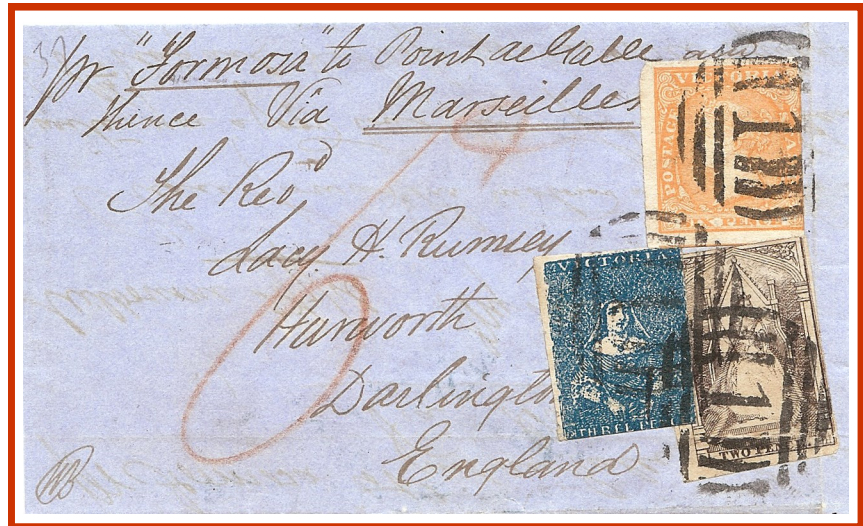 Pr "Formosa" to Point de Galle and
thence Via Marseilles
The Revd
Lacy H. Rumsey
Hurworth
Darlington
England
VICTORIA
POSTAGE
VICTORIA
THREE PE
TWO PE
1
1